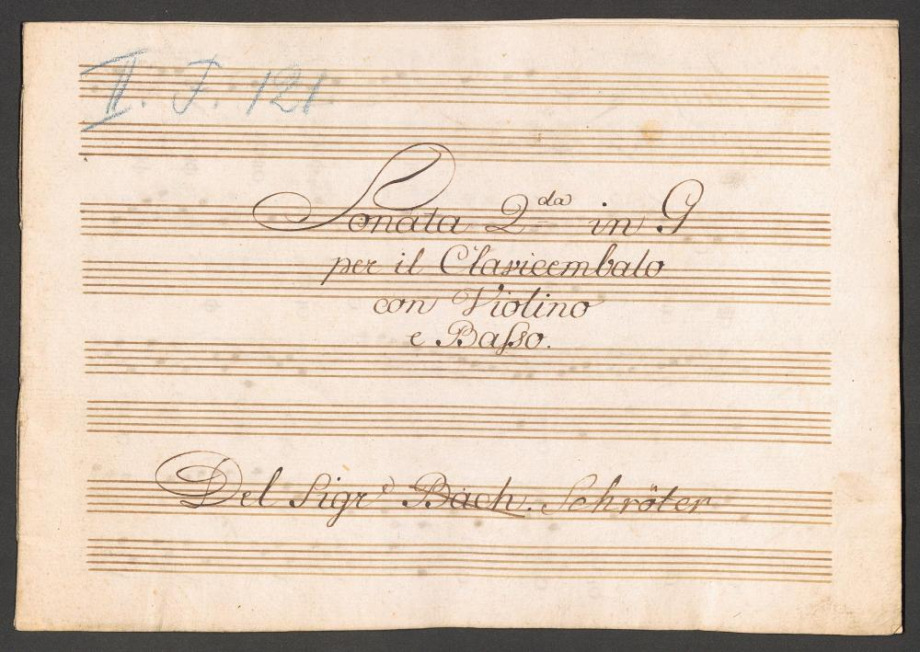 II. J. 121
Sonata 2da in G
per il Clavicembalo
con Violino
e Baſso.
Del Sigre Bach. Schröter